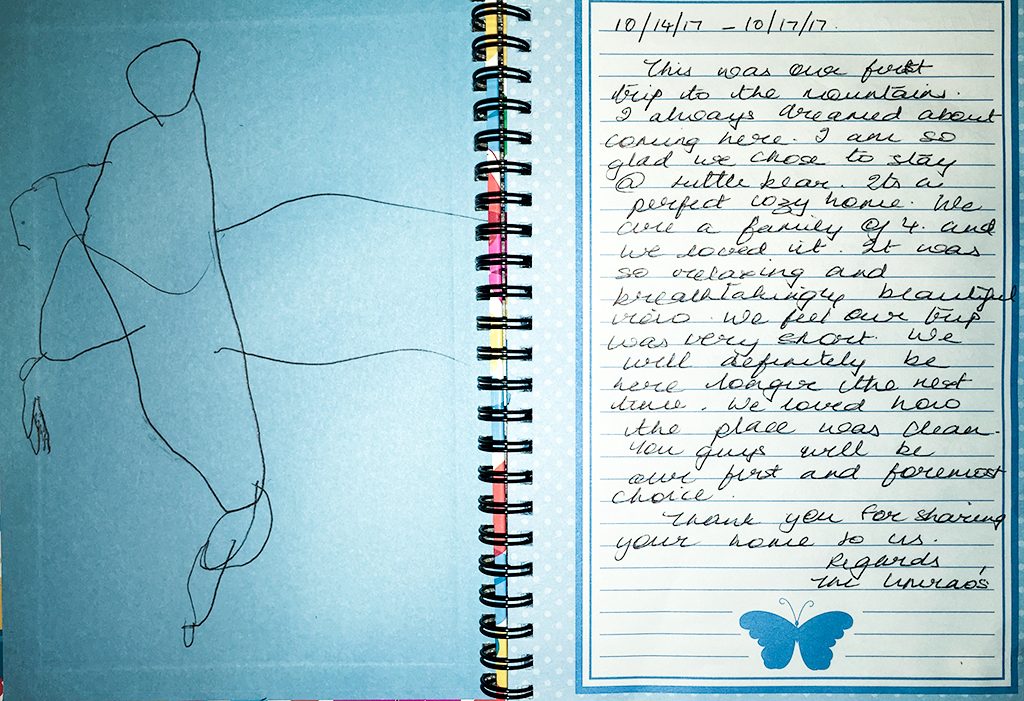 10/14/17 - 10/17/17.
This was our first
trip to the mountains.
I always dreamed about
coming here. I am so
glad we chose to stay
@ little bear. Its a
perfect cozy home. We
are a family of 4. and
we loved it. It was
so relaxing and
breathtakingly beautiful
view. We feel our trip
was very short. We
will definitely be
here longer the next
time. We loved how
the place was clean.
You guys will be
our first and foremost
choice.
Thank you for sharing
your home to us.
Regards,
The